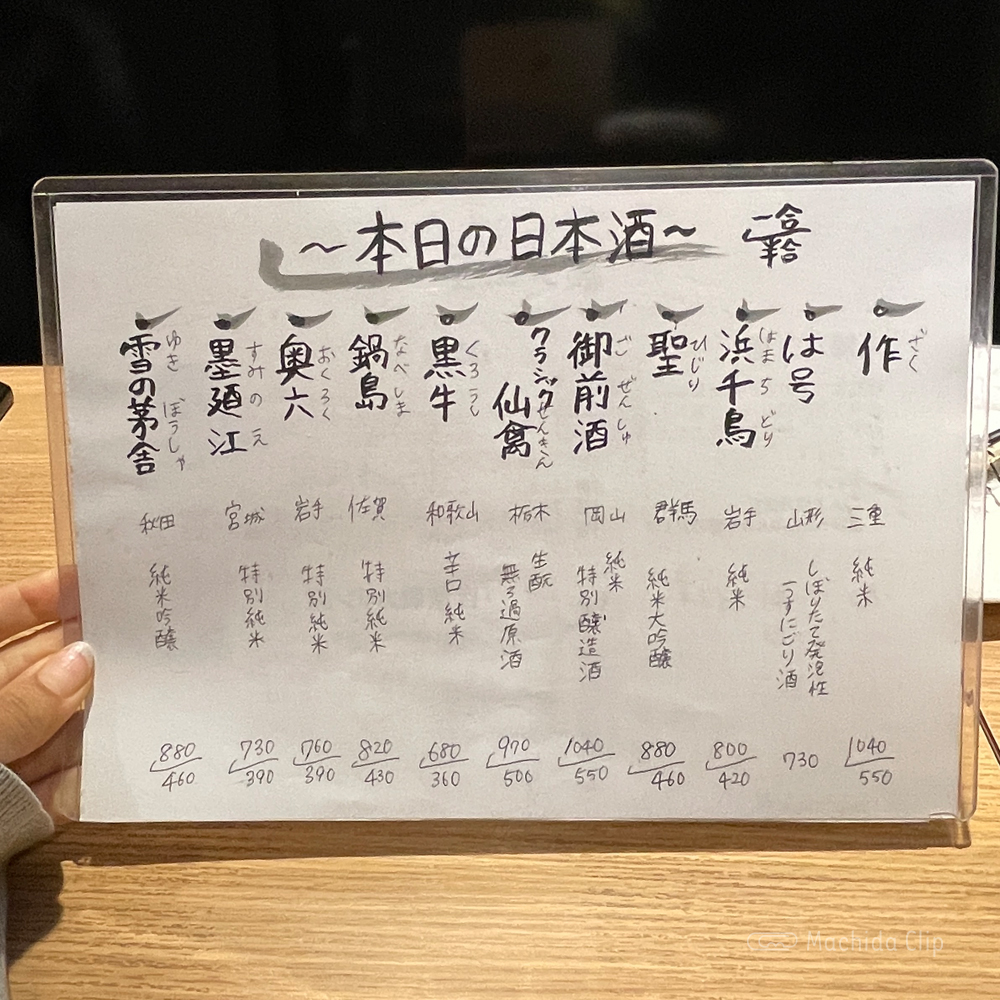 ～本日の日本酒～
一合
半合
作
ざく
三重
純米
1040
550
は号
山形
しぼりたて発泡性
うすにごり酒
730
浜千鳥
はまちどり
岩手
純米
800
420
聖
ひじり
群馬
純米大吟醸
880
460
御前酒
ごぜんしゅ
岡山
純米
特別醸造酒
1040
550
クラシック
仙禽
せんきん
栃木
生酛
無ろ過原酒
970
500
黒牛
くろうし
和歌山
辛口 純米
680
360
鍋島
なべしま
佐賀
特別純米
820
430
奥六
おくろく
岩手
特別純米
760
390
墨廼江
すみのえ
宮城
特別純米
730
390
雪の茅舎
ゆき ぼうしゃ
秋田
純米吟醸
880
460
Machida Clip